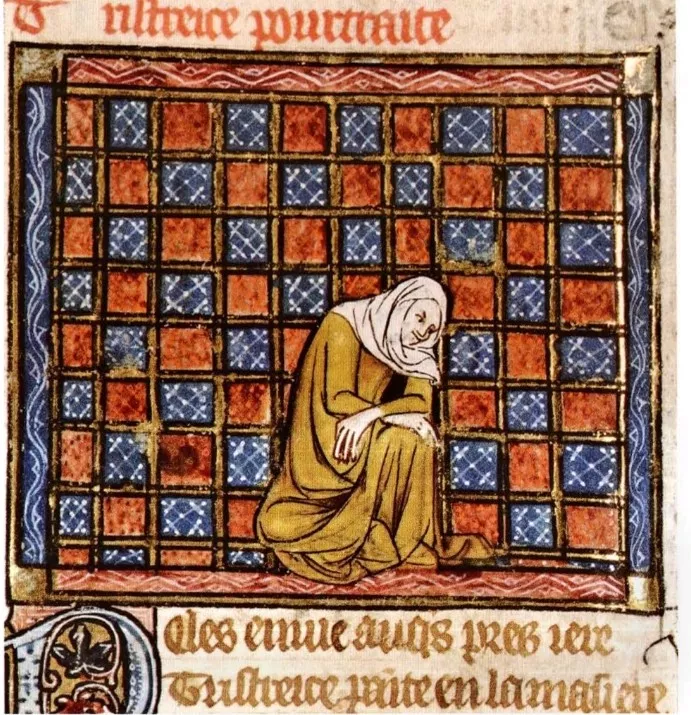 Tristreice pourtraite
Dles enuie auqs pres iere
Tristreice paite en lamasiere